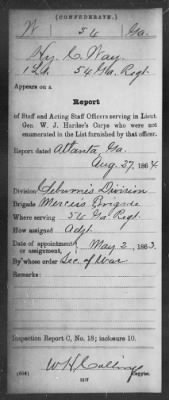 (CONFEDERATE.)
W 54 Ga.
Hy. C. Way
1 Lt., 54 Ga. Regt.
Appears on a
Report
of Staff and Acting Staff Officers serving in Lieut.
Gen. W. J. Hardee's Corps who were not
enumerated in the List furnished by that officer.
Report dated Atlanta, Ga.
Aug. 27, 1864
Division Cleburne's Division
Brigade Mercer's Brigade
Where serving 54 Ga. Regt.
How assigned Adjt.
Date of appointment or assignment, May 2, 1863.
By whose order Sec. of War
Remarks:
Inspection Report C, No. 18; inclosure 10.
Copyist.